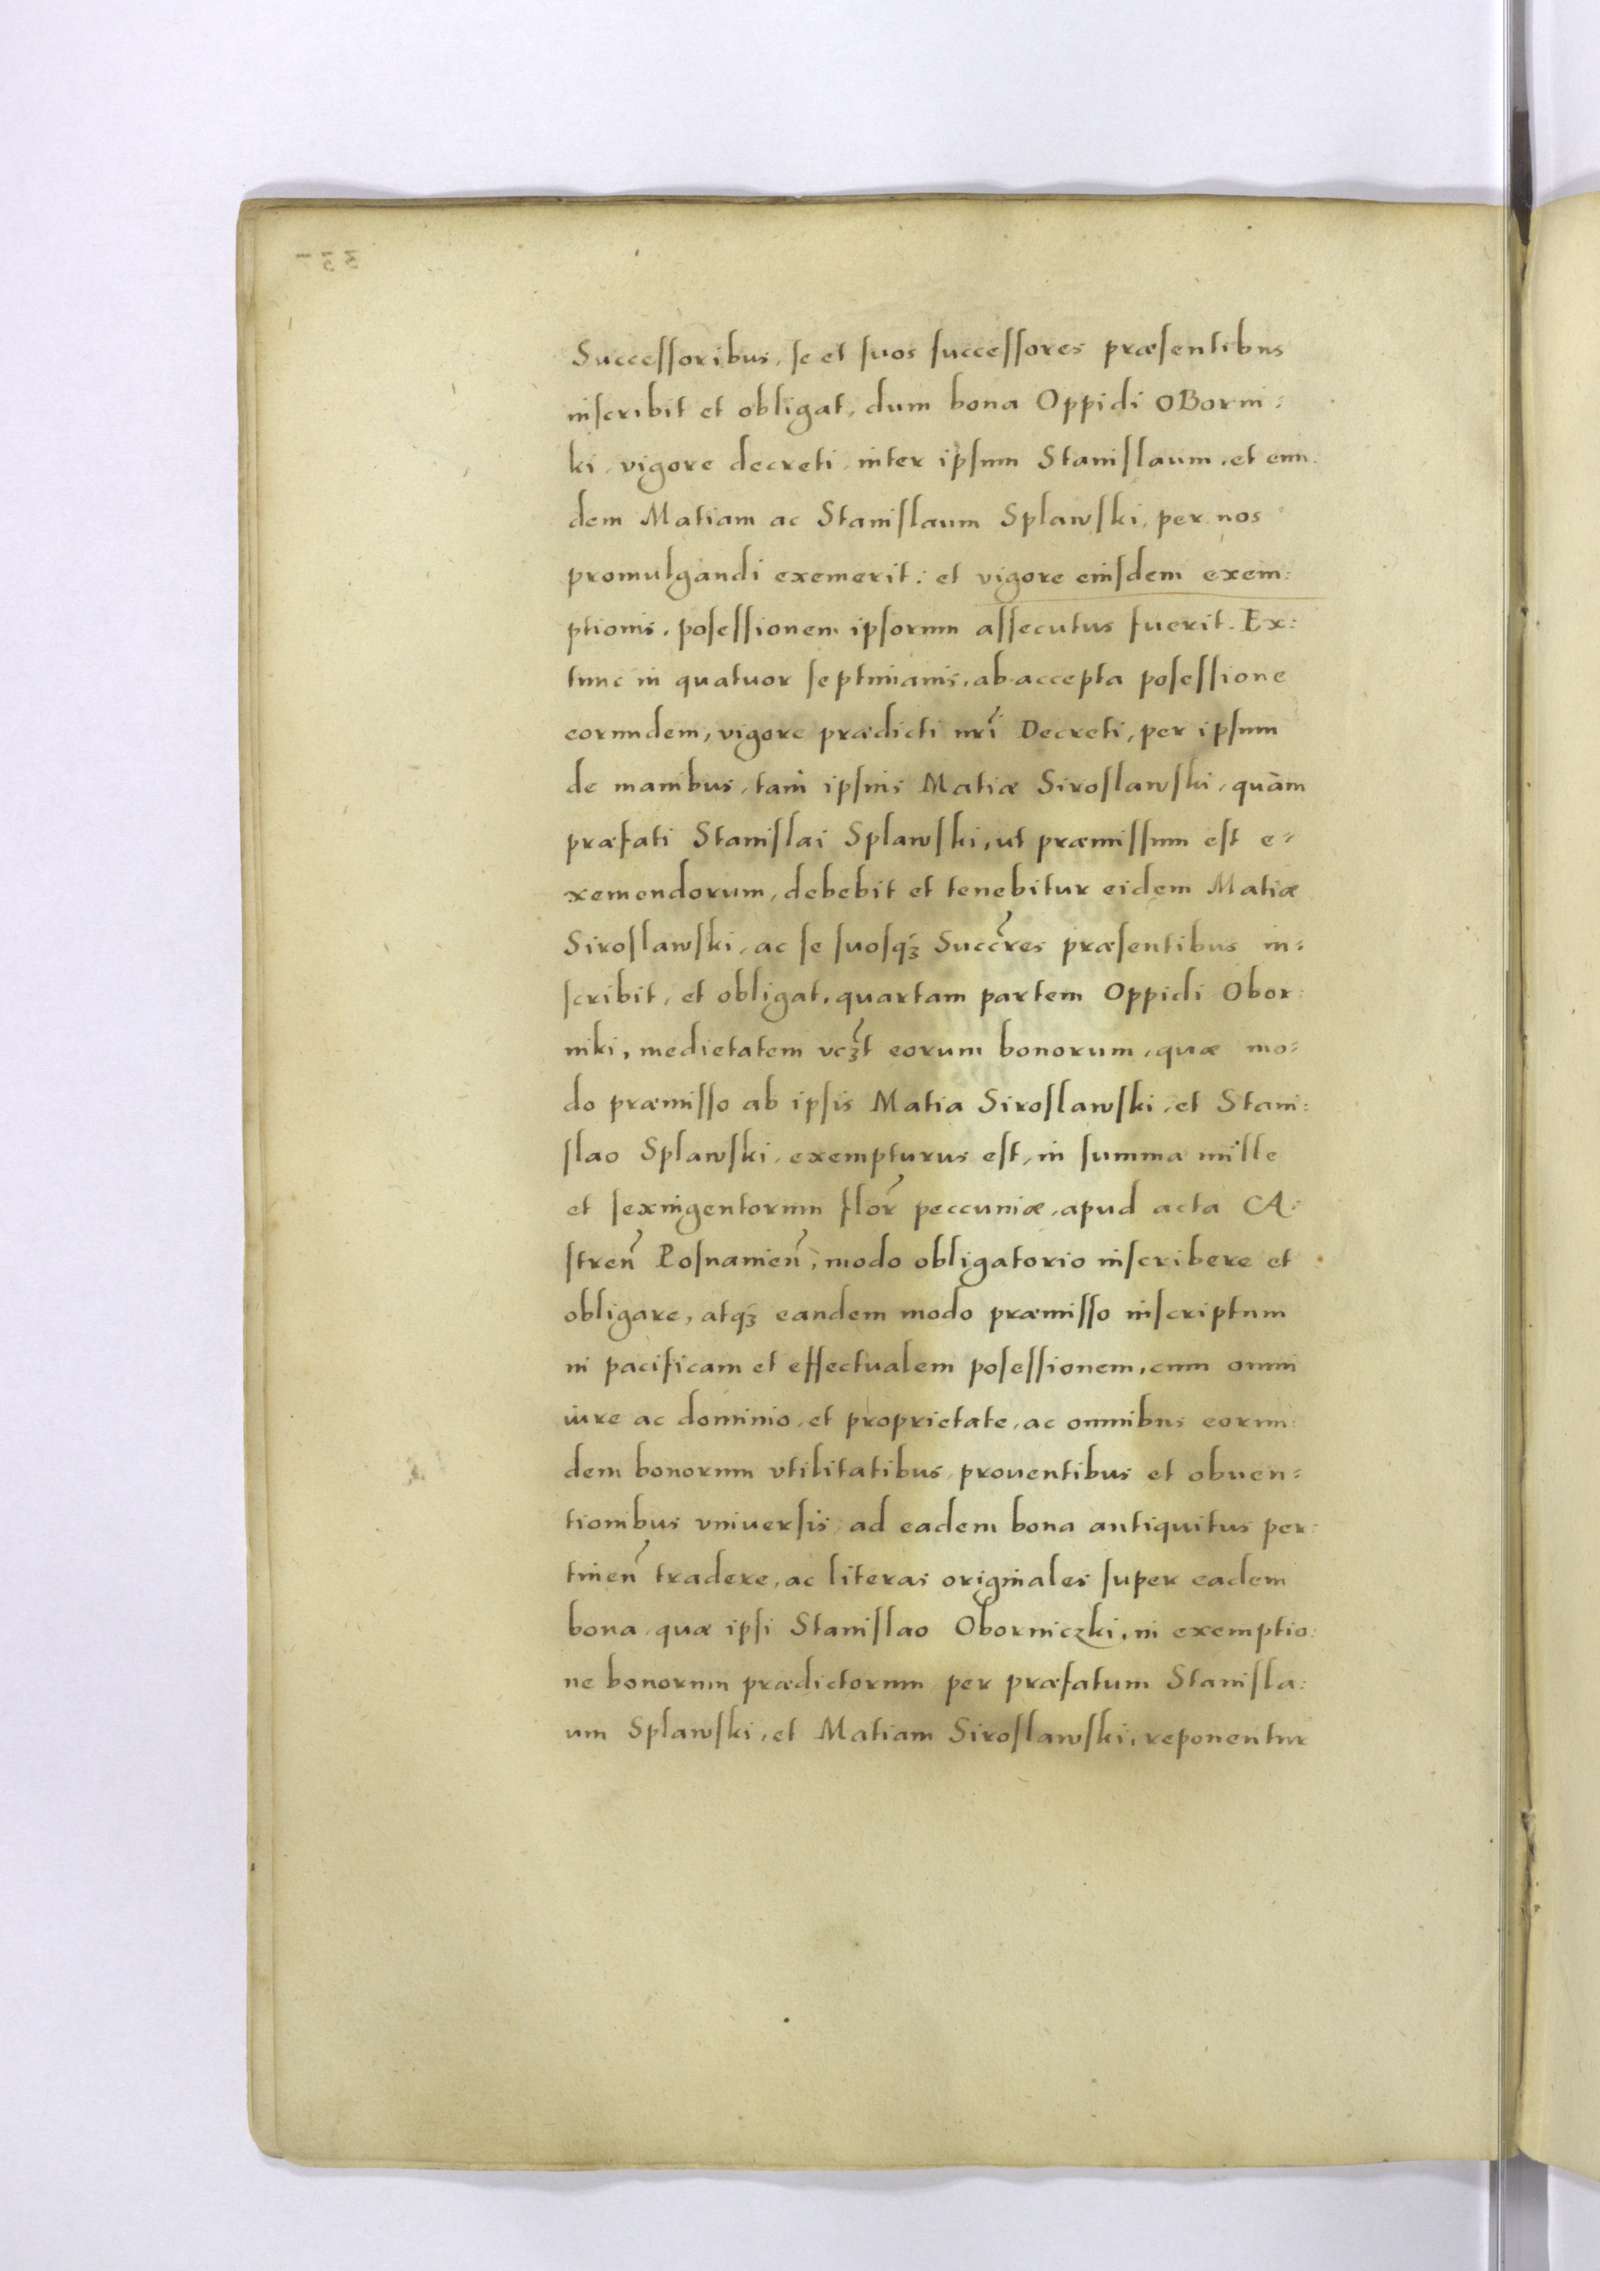 Succeſſoribus, ſe et ſuos ſucceſſores præſentibus
inſcribit et obligat, dum bona Oppidi OBorni:
ki, vigore decreti, inter ipſum Staniſlaum, et eun
dem Matiam ac Staniſlaum Splawſki, per nos
promulgandi exemerit: et vigore eiuſdem exem:
ptionis, poſeſſionem ipſorum aſſecutus fuerit. Ex:
tunc in quatuor ſeptimanis, ab accepta poſeſſione
eorundem, vigore prædicti nr̃i Decreti, per ipſum
de manibus, tam ipſius Matiæ Siroſlawſki, quàm
præfati Staniſlai Splawſki, ut præmiſſum eſt e:
xemendorum, debebit et tenebitur eidem Matiæ
Siroſlawſki, ac ſe ſuoſqꝫ Succr̃es præſentibus in:
ſcribit, et obligat, quartam partem Oppidi Obor:
niki, medietatem vcꝫt eorum bonorum, quæ mo:
do præmiſſo ab ipſis Matia Siroſlawſki, et Stani:
ſlao Splawſki, exempturus eſt, in ſumma mille
et ſexingentorum flor̃ peccuniæ, apud acta CA:
ſtreñ Poſnanieñ, modo obligatorio inſcribere et
obligare, atqꝫ eandem modo præmiſſo inſcriptum
in pacificam et effectualem poſeſſionem, cum omni
iure ac dominio, et proprietate, ac omnibus eorun:
dem bonorum vtilitatibus, prouentibus et obuen:
tionibus vniuerſis, ad eadem bona antiquitus per:
tineñ tradere, ac literas originales ſuper eadem
bona, quæ ipſi Staniſlao Oborniczki, in exemptio:
ne bonorum prædictorum per præfatum Staniſla:
um Splawſki, et Matiam Siroſlawſki, reponentur